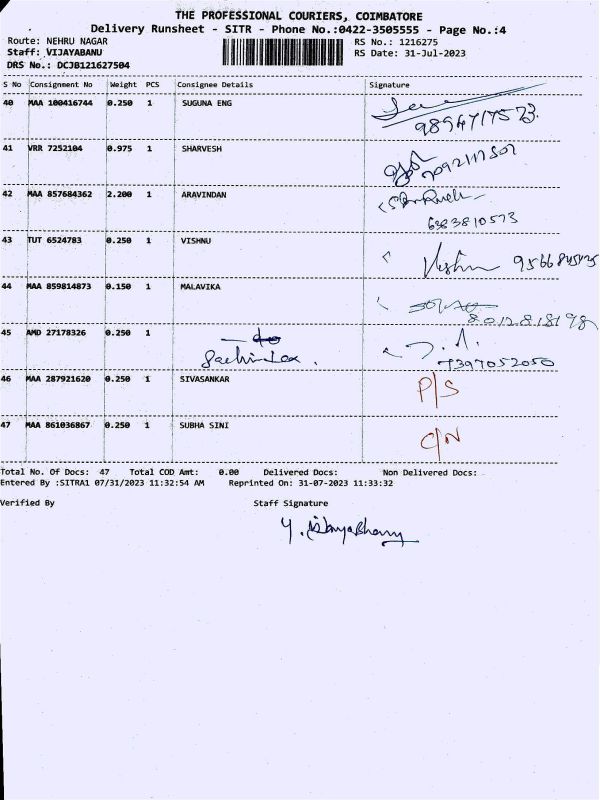 THE PROFESSIONAL COURIERS, COIMBATORE
Delivery Runsheet - SITR - Phone No.:0422-3505555 - Page No.:4
Route: NEHRU NAGAR RS No.: 1216275
Staff: VIJAYABANU RS Date: 31-Jul-2023
DRS No.: DCJB121627504
S No Consignment No Weight PCS Consignee Details Signature
40 MAA 100416744 0.250 1 SUGUNA ENG
9894717573
41 VRR 7252104 0.975 1 SHARVESH
7092117507
42 MAA 857684362 2.200 1 ARAVINDAN
6383810573
43 TUT 6524783 0.250 1 VISHNU Vishnu
44 MAA 859814873 0.150 1 MALAVIKA
8012818198
45 AMD 27178326 0.250 1
7397052050
46 MAA 287921620 0.250 1 SIVASANKAR P/S
47 MAA 861036867 0.250 1 SUBHA SINI C/N
Total No. Of Docs: 47 Total COD Amt: 0.00 Delivered Docs: Non Delivered Docs:
Entered By :SITRA1 07/31/2023 11:32:54 AM Reprinted On: 31-07-2023 11:33:32
Verified By Staff Signature